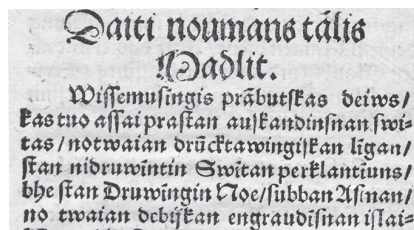 Daiti noumans tālis
Madlit.
Wissemusīngis prābutskas deiws/
kas tuo assai prastan auskandinsnan swi-
tas/ notwaian drūcktawingiskan līgan/
stan nidruwīntin Switan perklantīuns/
bhe stan Druwīngin Noe/ subban Asman/
no twaian debījkan engraudīsnan islai-